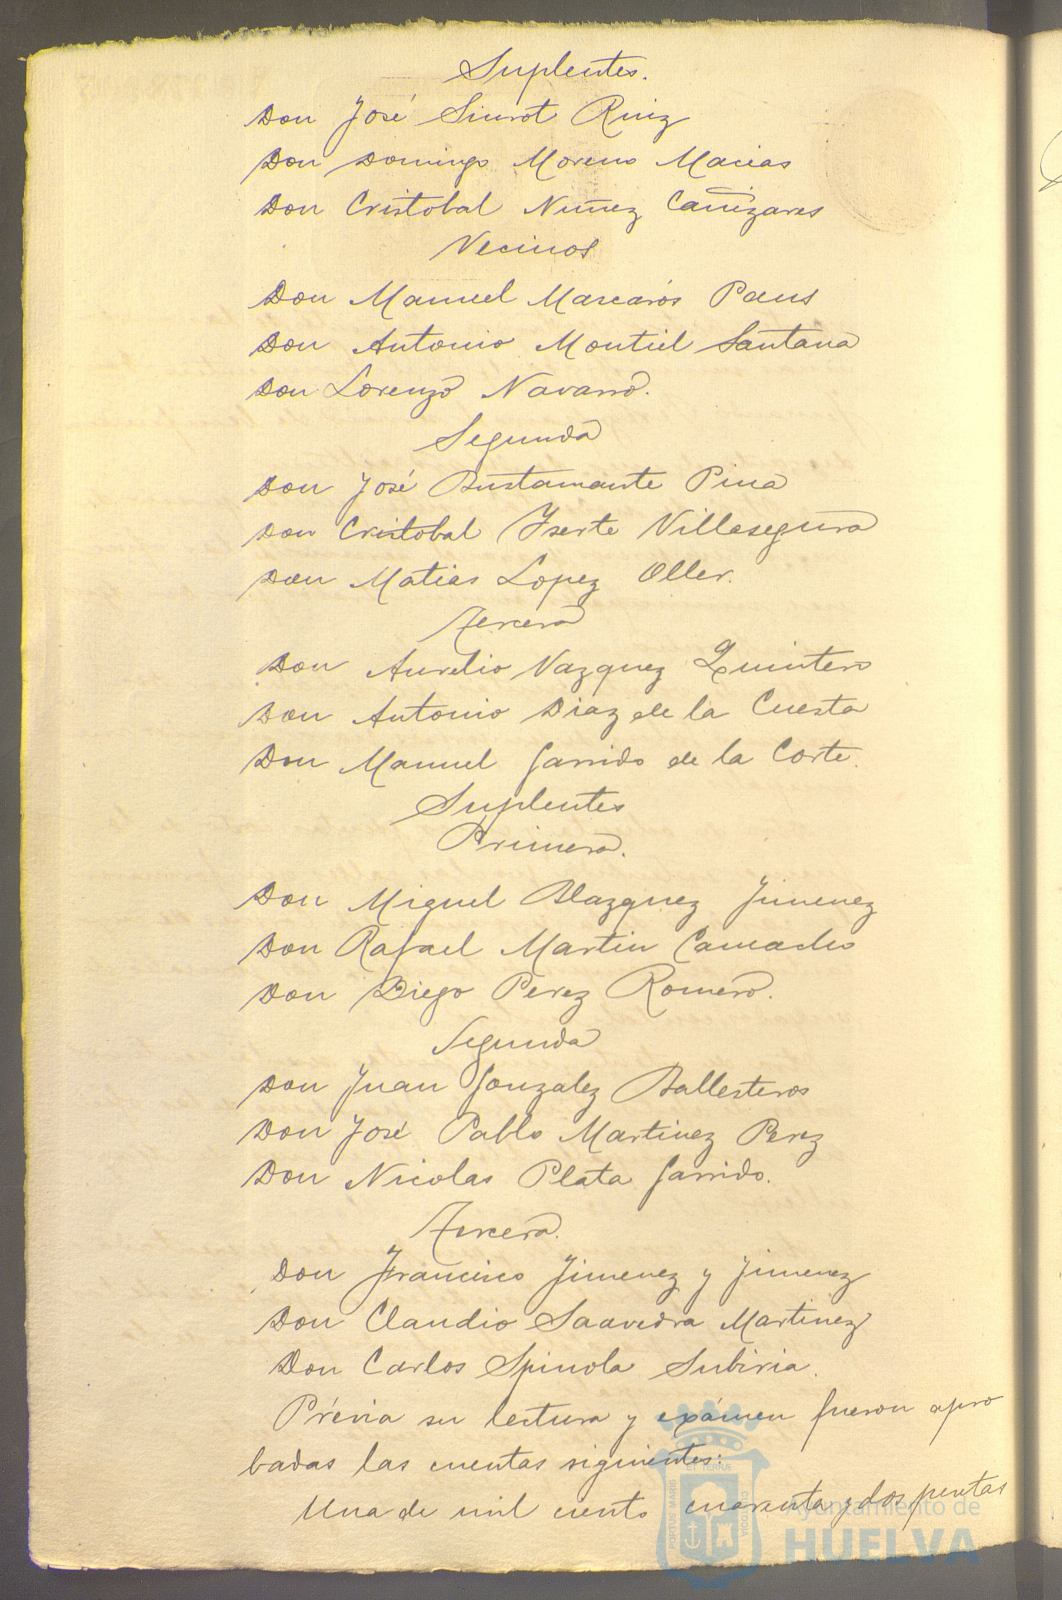 Suplentes.
Don José Siurot Ruiz
Don Domingo Moreno Macias
Don Cristobal Nuñez Cañizares
Vecinos
Don Manuel Mascarós Paus
Don Antonio Montiel Santana
Don Lorenzo Navarro.
Segunda
Don José Bustamante Pina
Don Cristobal Yserte Villasegura
Don Matias Lopez Oller.
Tercera
Don Aurelio Vazquez Quintero
Don Antonio Diaz de la Cuesta
Don Manuel Garrido de la Corte.
Suplentes
Primera.
Don Miguel Blazquez Jimenez
Don Rafael Martin Camacho
Don Diego Perez Romero.
Segunda
Don Juan Gonzalez Ballesteros
Don José Pablo Martinez Perez
Don Nicolas Plata Garrido.
Tercera.
Don Francisco Jimenez y Jimenez
Don Claudio Saavedra Martinez
Don Carlos Spinola Subiria.
Prévia su lectura y exámen fueron apro
badas las cuentas siguientes:
Una de mil ciento cuarenta y dos pesetas
Ayuntamiento de
HUELVA